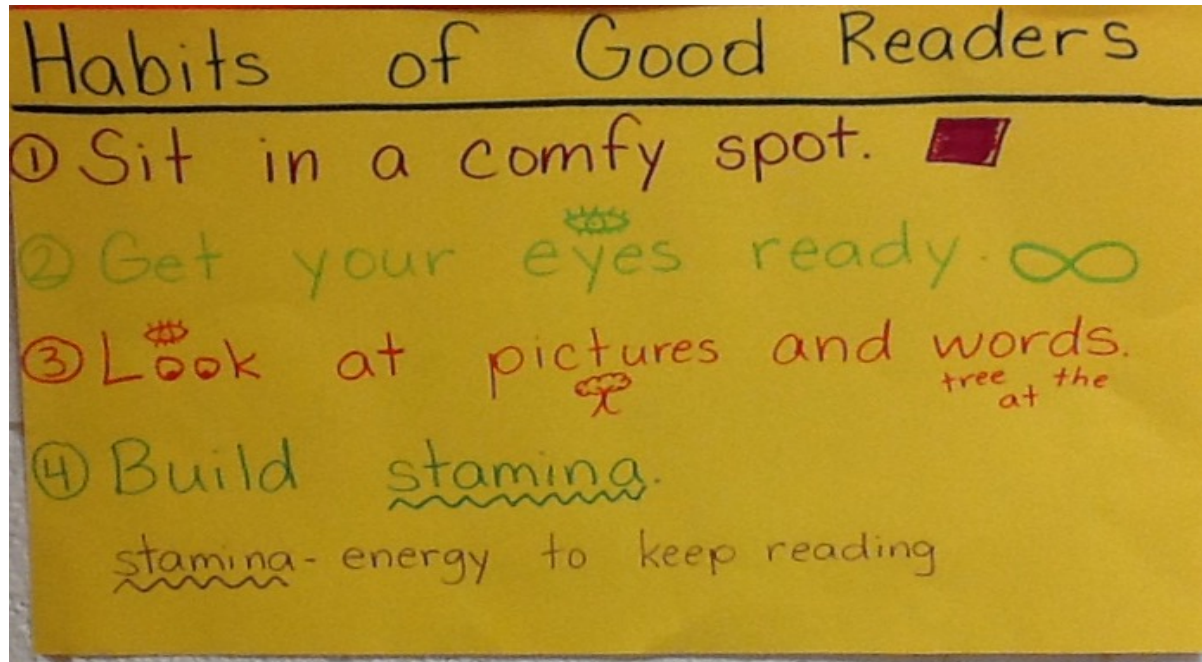 Habits of Good Readers
① Sit in a comfy spot.
② Get your eyes ready.
③ Look at pictures and words.
tree at the
④ Build stamina.
stamina - energy to keep reading